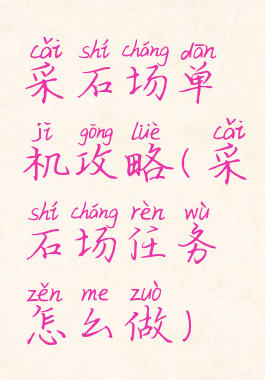 cǎi shí cháng dān
采石场单
jī gōng lüè ( cǎi
机攻略(采
shí cháng rèn wù
石场任务
zěn me zuò
怎么做)